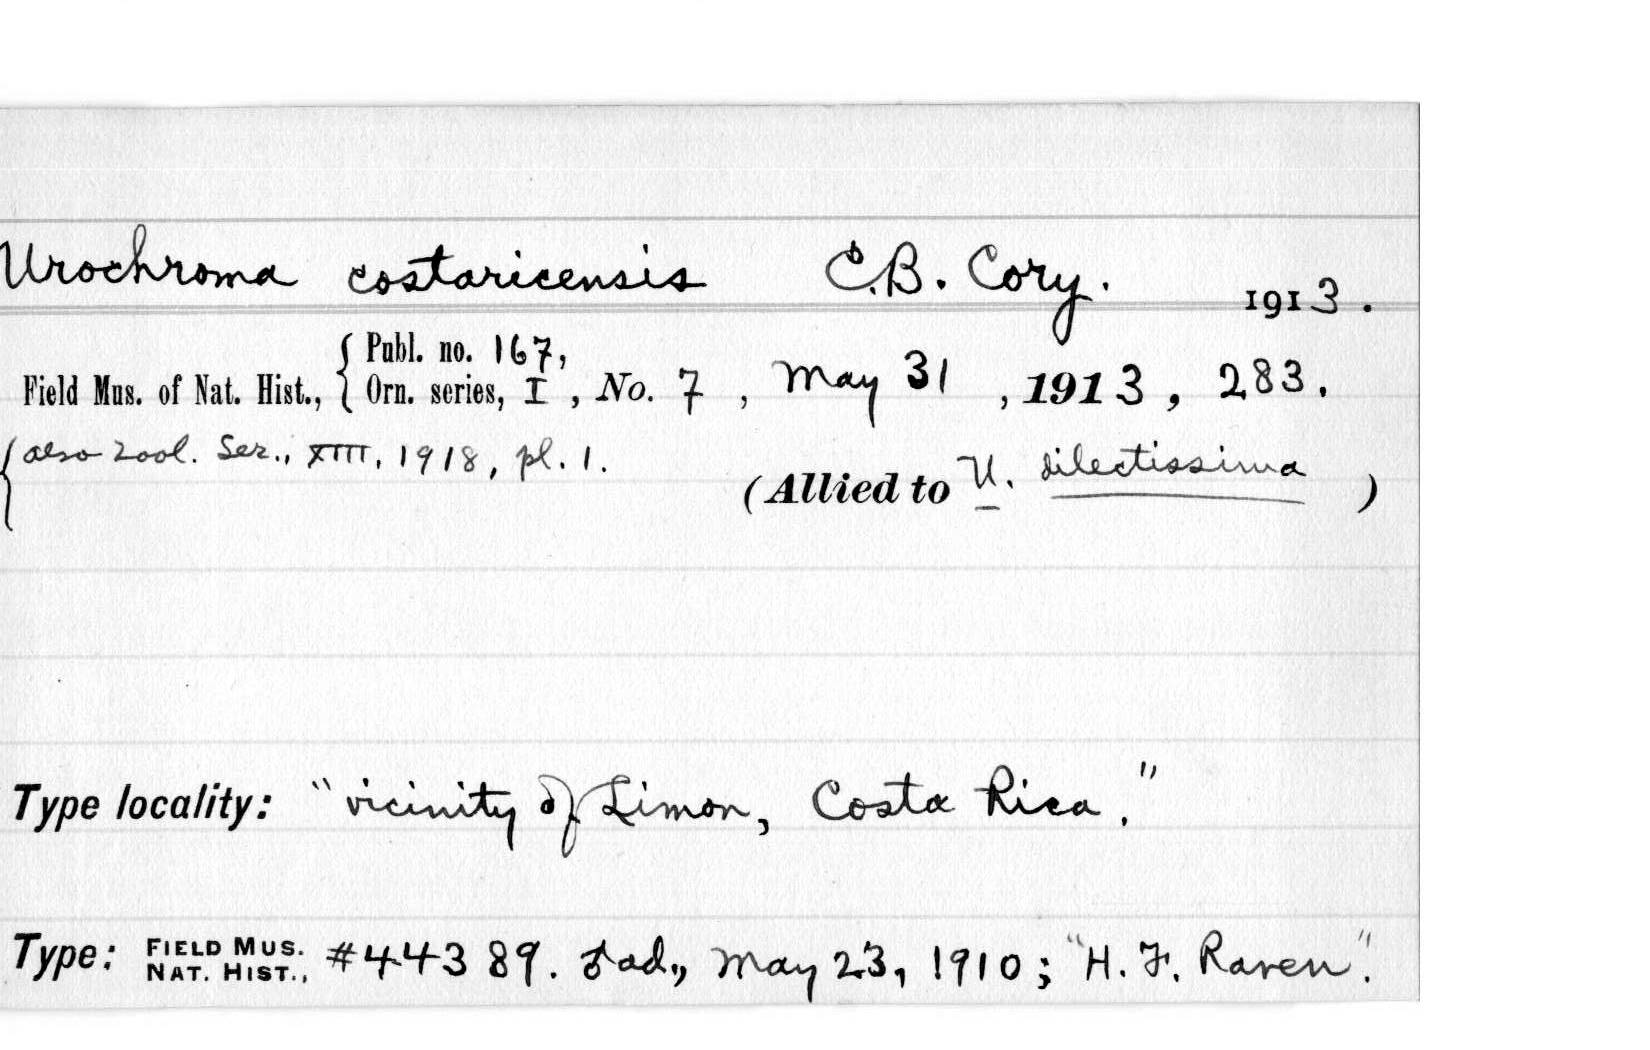 Urochroma costaricensis C.B. Cory. 1913.
Field Mus. of Nat. Hist., { Publ. no. 167,
Orn. series, I, No. 7, May 31, 1913, 283.
{ also Zool. Ser., XIII, 1918, pl. 1.
(Allied to U. dilectissima)
Type locality: "vicinity of Limon, Costa Rica."
Type: FIELD MUS. NAT. HIST., #44389. ♂ ad., May 23, 1910; "H. F. Raven".